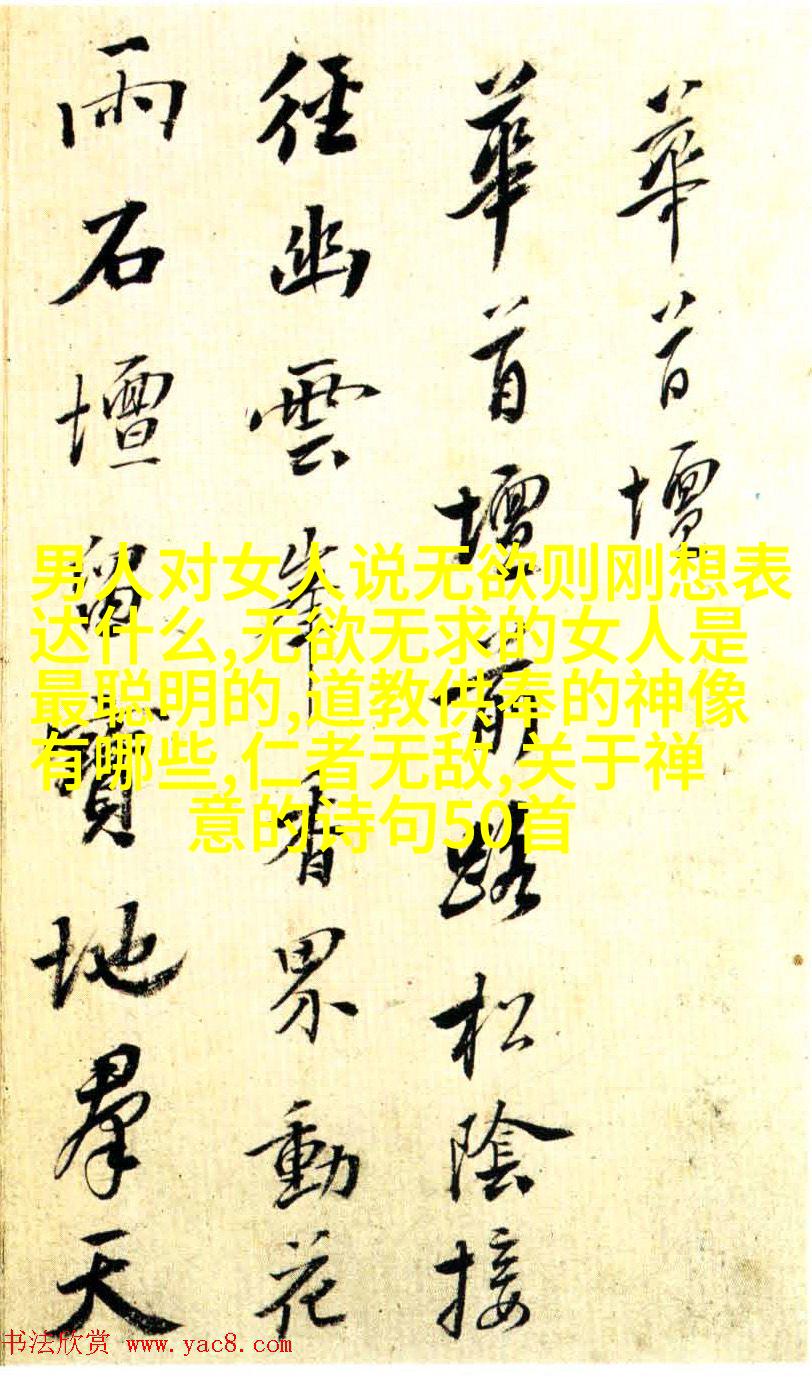 華首壇
華首壇前路松陰接
徑幽雲峰香界動花
雨石壇留寶地羣天
男人对女人说无欲则刚想表
达什么,无欲无求的女人是
最聪明的,道教供奉的神像
有哪些,仁者无敌,关于禅
意的诗句50首
书法欣赏 www.yac8.com